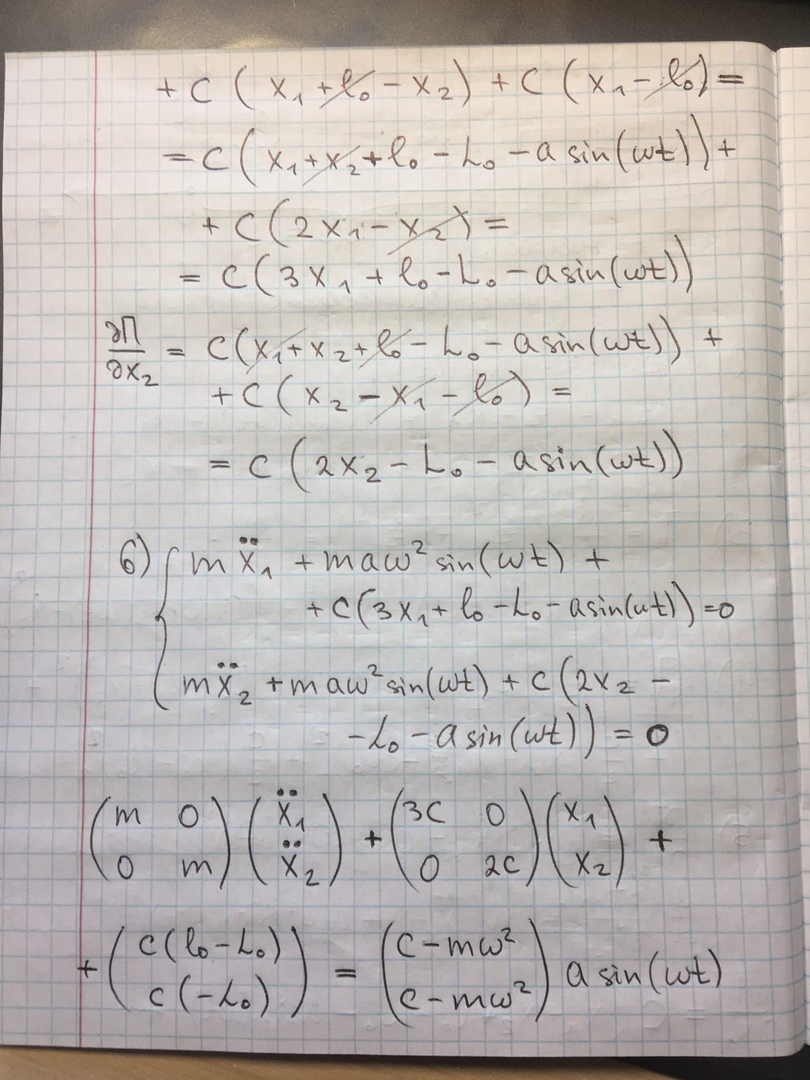 + c ( x₁ + l₀ - x₂ ) + c ( x₁ - l₀ ) =
= c ( x₁ + x₂ + l₀ - L₀ - a sin(ωt) ) +
+ c ( 2x₁ - x₂ ) =
= c ( 3x₁ + l₀ - L₀ - a sin(ωt) )
∂П/∂x₂ = c ( x₁ + x₂ + l₀ - L₀ - a sin(ωt) ) +
+ c ( x₂ - x₁ - l₀ ) =
= c ( 2x₂ - L₀ - a sin(ωt) )
6) { m ẍ₁ + maω² sin(ωt) +
+ c ( 3x₁ + l₀ - L₀ - a sin(ωt) ) = 0
m ẍ₂ + maω² sin(ωt) + c ( 2x₂ -
- L₀ - a sin(ωt) ) = 0
( m 0 ) ( ẍ₁ ) + ( 3c 0 ) ( x₁ ) +
( 0 m ) ( ẍ₂ ) ( 0 2c ) ( x₂ )
+ ( c(l₀ - L₀) ) = ( c - mω² ) a sin(ωt)
( c(-L₀) ) ( c - mω² )